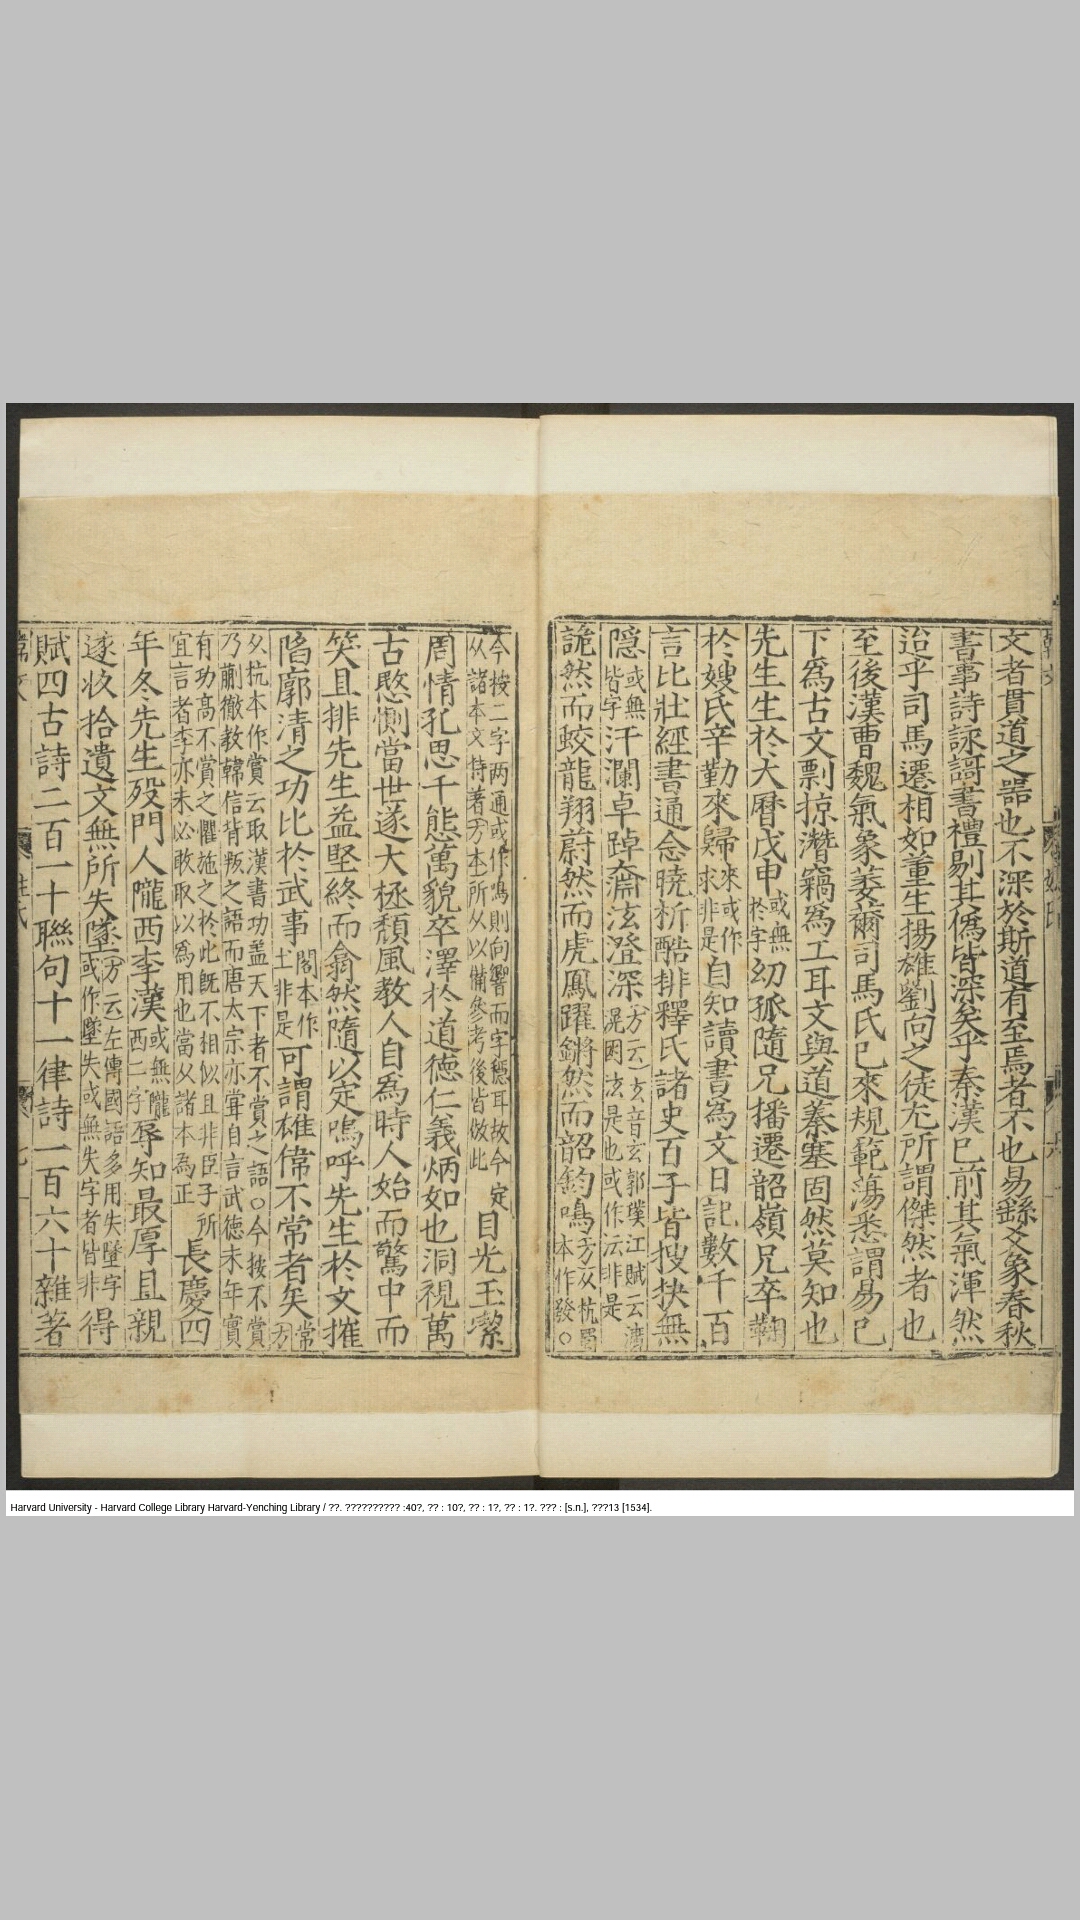 文者貫道之器也不深於斯道有至焉者不也易繇爻象春秋
書事詩詠謌書禮剔其偽皆深矣乎秦漢已前其氣渾然
迨乎司馬遷相如董生揚雄劉向之徒尤所謂傑然者也
至後漢曹魏氣象萎薾司馬氏已來規範蕩悉謂易已
下為古文剽掠潛竊為工耳文與道蓁塞固然莫知也
先生生於大曆戊申或無於字幼孤隨兄播遷韶嶺兄卒鞠
於嫂氏辛勤來歸來或作求非是自知讀書為文日記數千百
言比壯經書通念曉析酷排釋氏諸史百子皆搜抉無
隱或無皆字汗瀾卓踔奫泫澄深方云泫音玄郭璞江賦云澐滉囦泫是也或作沄非是
詭然而蛟龍翔蔚然而虎鳳躍鏘然而韶鈞鳴方从杭蜀本作發〇
今按二字两通或作鳴則向響而字穩耳故今定从諸本文特著方本所从以備參考後皆倣此日光玉潔
周情孔思千態萬貌卒澤於道德仁義炳如也洞視萬
古愍惻當世遂大拯頹風教人自為時人始而驚中而
笑且排先生益堅終而翕然隨以定嗚呼先生於文摧
陷廓清之功比於武事閣本作士非是可謂雄偉不常者矣常方
从杭本作賞云取漢書功盖天下者不賞之語〇今按不賞乃蒯徹教韓信背叛之語而唐太宗亦甞自言武德末年實
有功高不賞之懼施之於此既不相似且非臣子所宜言者李亦未必敢取以為用也當从諸本為正長慶四
年冬先生歿門人隴西李漢或無隴西二字辱知最厚且親
遂收拾遺文無所失墜方云左傳國語多用失墜字或作墜失或無失字者皆非得
賦四古詩二百一十聯句十一律詩一百六十雜著